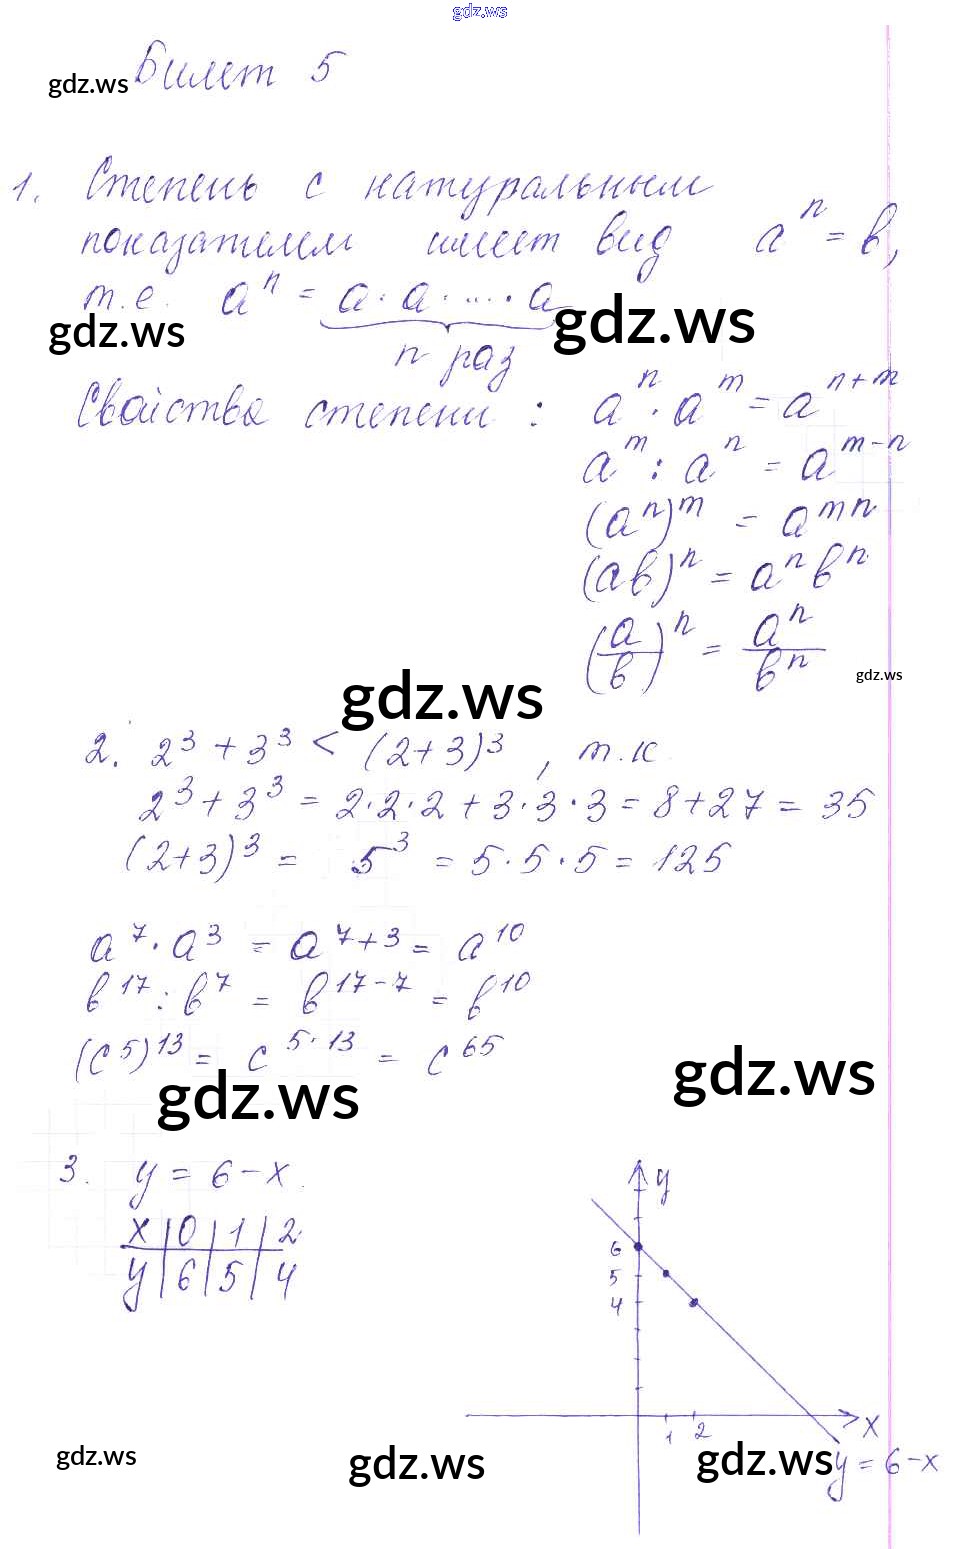 gdz.ws
Билет 5
gdz.ws
1. Степень с натуральным
показателем имеет вид aⁿ = b,
т.е. aⁿ = a · a · ... · a
gdz.ws gdz.ws
n раз
Свойства степени : aⁿ · aᵐ = aⁿ⁺ᵐ
aᵐ : aⁿ = aᵐ⁻ⁿ
(aⁿ)ᵐ = aᵐⁿ
(ab)ⁿ = aⁿbⁿ
(a/b)ⁿ = aⁿ/bⁿ
gdz.ws
gdz.ws
2. 2³ + 3³ < (2+3)³, т.к
2³ + 3³ = 2·2·2 + 3·3·3 = 8+27 = 35
(2+3)³ = 5³ = 5·5·5 = 125
a⁷ · a³ = a⁷⁺³ = a¹⁰
b¹⁷ : b⁷ = b¹⁷⁻⁷ = b¹⁰
(c⁵)¹³ = c⁵·¹³ = c⁶⁵
gdz.ws gdz.ws
3. y = 6-x.
x | 0 | 1 | 2
y | 6 | 5 | 4
y
6
5
4
1 2 x
gdz.ws gdz.ws gdz.ws y = 6-x